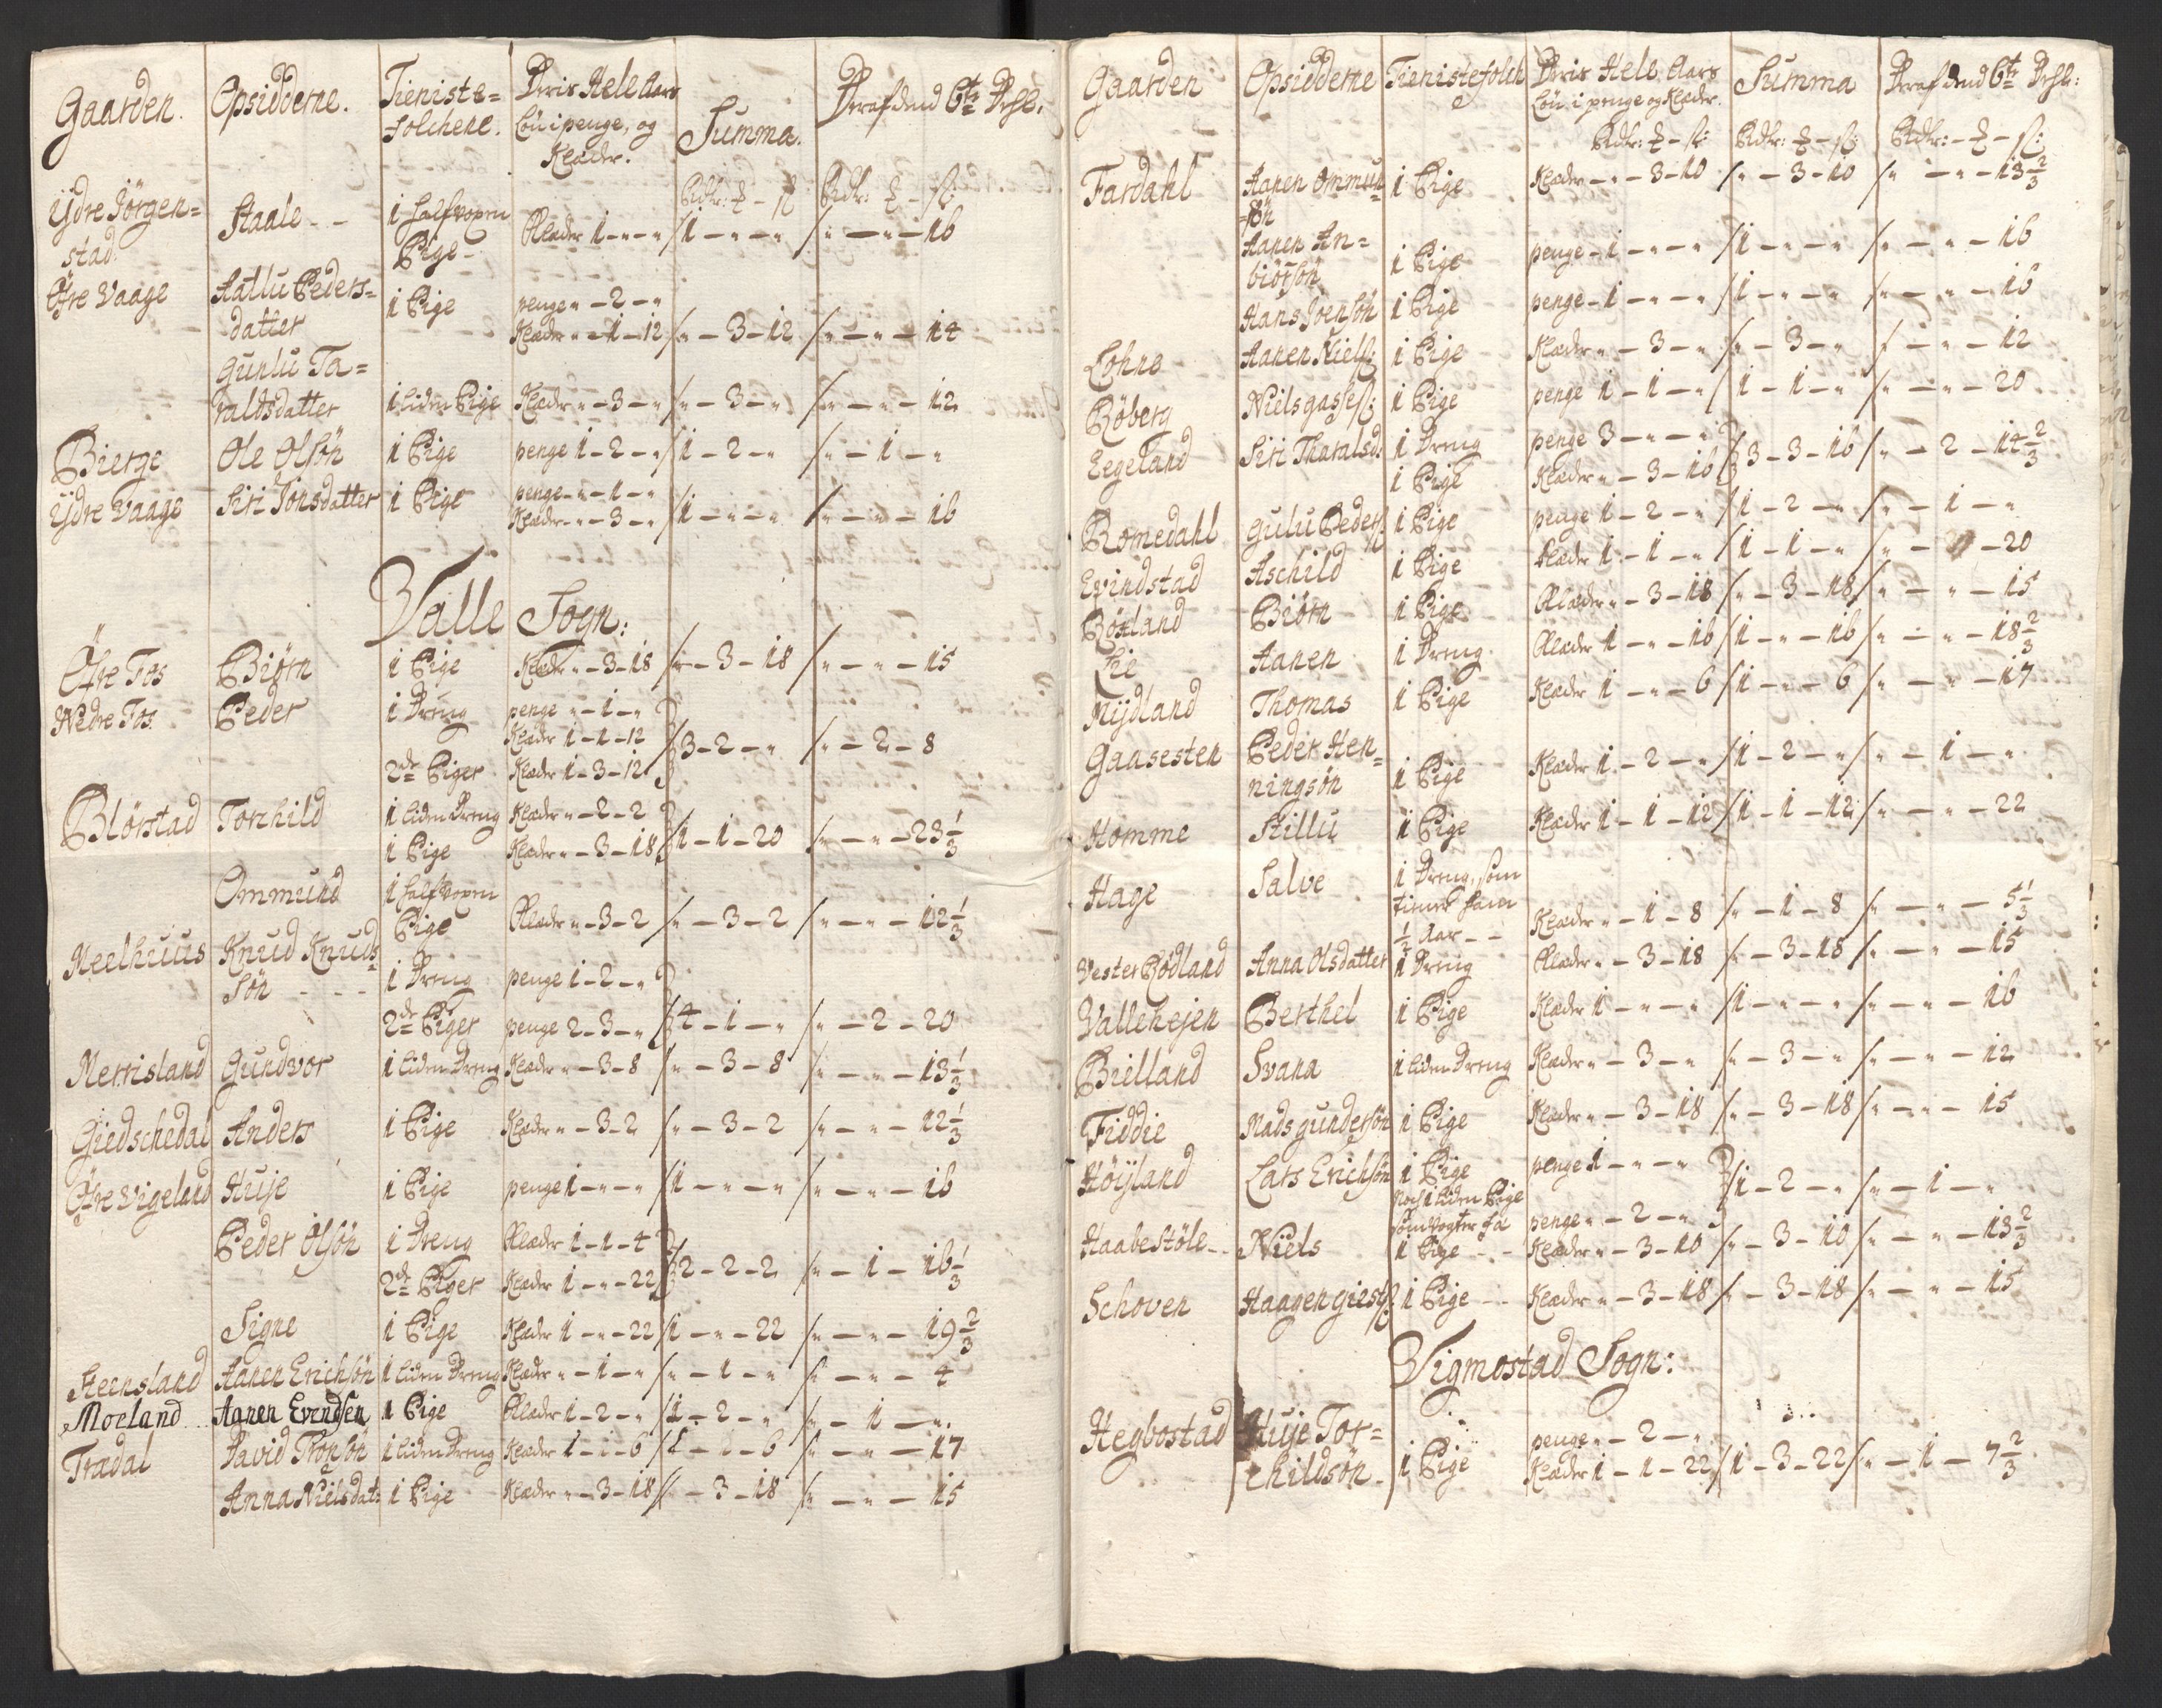 Gaarden. Opsidderne. Tieniste= Deris Hele Aars Summa. Deraf dend 6te Deel:
folchene. Løn i penge, og
Klæder.
Rdlr: ß Rdlr: ß
Ydre Jørgen= Staale - - 1 halfvoxen
stad Pige - Klæder 1 - " - " 1 - " - " " - " - 16
Øfre Vaage Aallu Peders= 1 Pige penge " - 2 - "
datter Klæder " - 1 - 12 " - 3 - 12 " - " - 14
Gunlu Ta=
raldsdatter 1 liden Pige Klæder " - 3 - " " - 3 - " " - " - 12
Bierge Ole Olsøn 1 Pige penge 1 - 2 - " 1 - 2 - " " - 1 - "
Ydre Vaage Siri Jonsdatter 1 Pige penge " - 1 - "
Klæder " - 3 - " 1 - " - " " - " - 16
Valle Sogn:
Øfre Fos Biørn 1 Pige Klæder " - 3 - 18 " - 3 - 18 " - " - 15
Nedre Fos Peder 1 Dreng penge " - 1 - "
Klæder 1 - 1 - 12 3 - 2 - " " - 2 - 8
2de Piger Klæder 1 - 3 - 12
Blørstad Torchild 1 liden Dreng Klæder " - 2 - 2
1 Pige Klæder " - 3 - 18 1 - 1 - 20 " - " - 23 1/3
Ommund 1 halfvoxen
Pige Klæder " - 3 - 2 " - 3 - 2 " - " - 12 1/3
Meelhuus Knud Knud=
søn - - - 1 Dreng penge 1 - 2 - "
2de Piger penge 2 - 3 - " 4 - 1 - " " - 2 - 20
Merrisland Gundvor 1 liden Dreng Klæder " - 3 - 8 " - 3 - 8 " - " - 13 1/3
Giedschedal Anders 1 Pige Klæder " - 3 - 2 " - 3 - 2 " - " - 12 1/3
Øfre Vigeland Huje 1 Pige penge 1 - " - " 1 - " - " " - " - 16
Peder Olsøn 1 Dreng Klæder 1 - 1 - 4
2de Piger Klæder 1 - " - 22 2 - 2 - 2 " - 1 - 16 1/3
Signe 1 Pige Klæder 1 - " - 22 1 - " - 22 " - " - 19 2/3
Steensland Aanen Erichsøn 1 liden Dreng Klæder " - 1 - " " - 1 - " " - " - 4
Moeland Aanen Evendsen 1 Pige Klæder 1 - 2 - " 1 - 2 - " " - 1 - "
Tradal David Tronsøn 1 liden Dreng Klæder 1 - " - 6 1 - " - 6 " - " - 17
Anna Nielsdat: 1 Pige Klæder " - 3 - 18 " - 3 - 18 " - " - 15
Gaarden Opsidderne Tienistefolch Deris Hele Aars Summa Deraf dend 6te Deel:
Løn i penge og Klæder.
Rdlr: ß: Rdlr: ß: Rdlr: ß:
Fardahl Aanen Ommun= 1 Pige Klæder " - 3 - 10 " - 3 - 10 " - " - 13 2/3
søn
Aanen An=
biørsøn 1 Pige penge - 1 - " - " 1 - " - " " - " - 16
Hans Joensøn 1 Pige penge - 1 - " - " 1 - " - " " - " - 16
Lohne Aanen Niels: 1 Pige Klæder " - 3 - " " - 3 - " " - " - 12
Røberg Niels gasses: 1 Pige penge 1 - 1 - " 1 - 1 - " " - " - 20
Eegeland Siri Tharalsd: 1 Dreng penge 3 - " - "
1 Pige Klæder " - 3 - 16 3 - 3 - 16 " - 2 - 14 2/3
Romedahl Gulu Peders: 1 Pige penge 1 - 2 - " 1 - 2 - " " - 1 - "
Evindstad Aschild 1 Pige Klæder 1 - 1 - " 1 - 1 - " " - " - 20
Røsland Biørn 1 Pige Klæder " - 3 - 18 " - 3 - 18 " - " - 15
Lie Aanen 1 Dreng Klæder 1 - " - 16 1 - " - 16 " - " - 18 2/3
Mydland Thomas 1 Pige Klæder 1 - " - 6 1 - " - 6 " - " - 17
Gaasesten Peder Hen=
ningsøn 1 Pige Klæder 1 - 2 - " 1 - 2 - " " - 1 - "
Homme Stillu 1 Pige Klæder 1 - 1 - 12 1 - 1 - 12 " - " - 22
Hage Salve 1 Dreng, som
tiener ham
1/2 Aar - - Klæder " - 1 - 8 " - 1 - 8 " - " - 5 1/3
Vester Rødland Anna Olsdatter 1 Dreng Klæder " - 3 - 18 " - 3 - 18 " - " - 15
Vallehejen Berthel 1 Pige Klæder 1 - " - " 1 - " - " " - " - 16
Bielland Svana 1 liden Dreng Klæder " - 3 - " " - 3 - " " - " - 12
Fiddie Mads gundersøn 1 Pige Klæder " - 3 - 18 " - 3 - 18 " - " - 15
Høyland Lars Erichsøn 1 Pige penge 1 - " - "
noch 1 liden Pige 1 - 2 - " " - 1 - "
som vogter fæ penge " - 2 - "
Haabestøle - - Niels 1 Pige - - Klæder " - 3 - 10 " - 3 - 10 " - " - 13 2/3
Schoven Haagen giests: 1 Pige - - Klæder " - 3 - 18 " - 3 - 18 " - " - 15
Vigmostad Sogn:
Hegbostad Huje Tor= penge " - 2 - "
childsøn - 1 Pige Klæder 1 - 1 - 22 1 - 3 - 22 " - 1 - 7 2/3